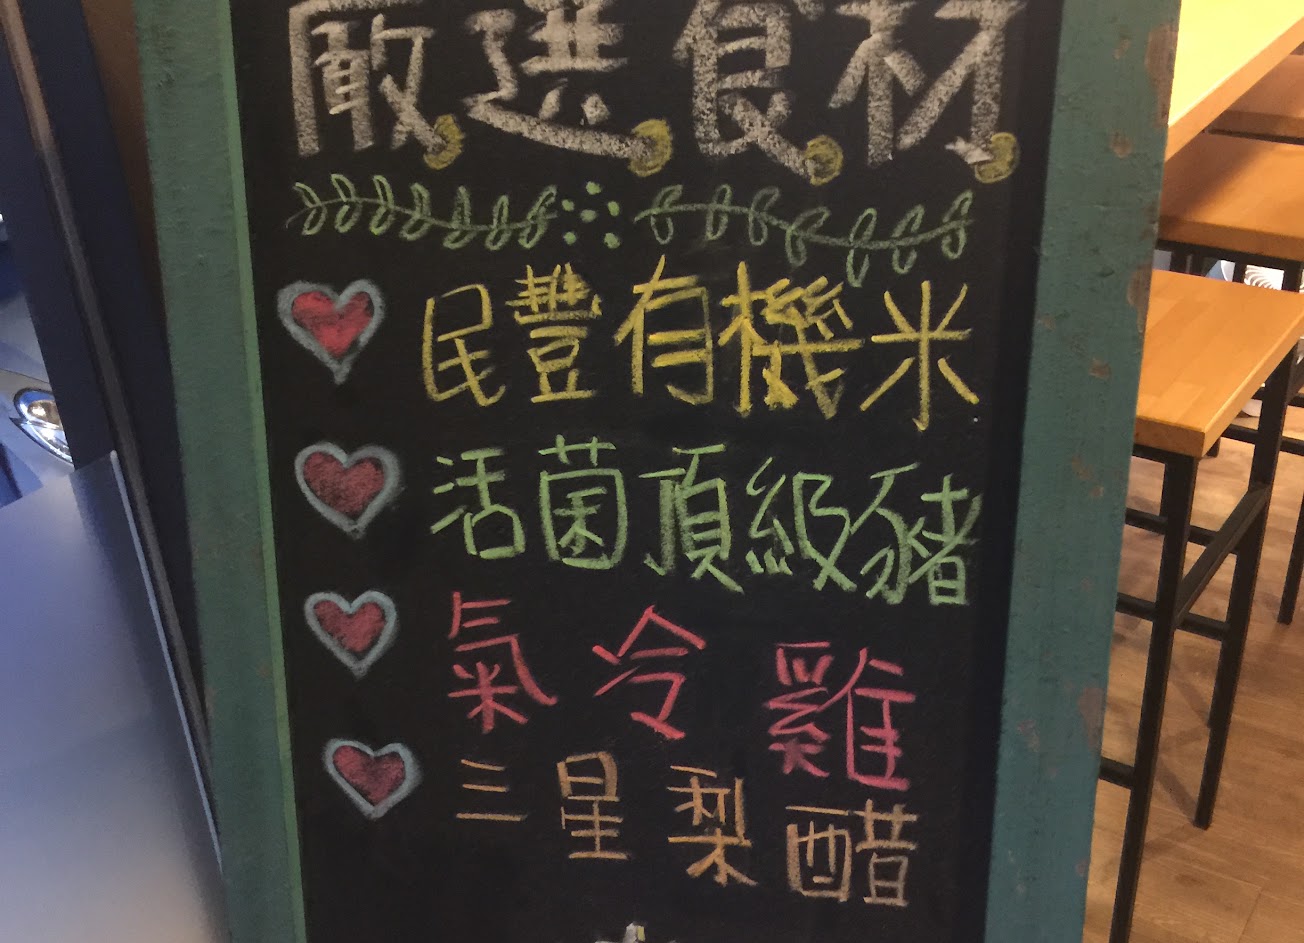 嚴選食材
民豐有機米
活菌頂級豬
氣冷雞
三星梨醋